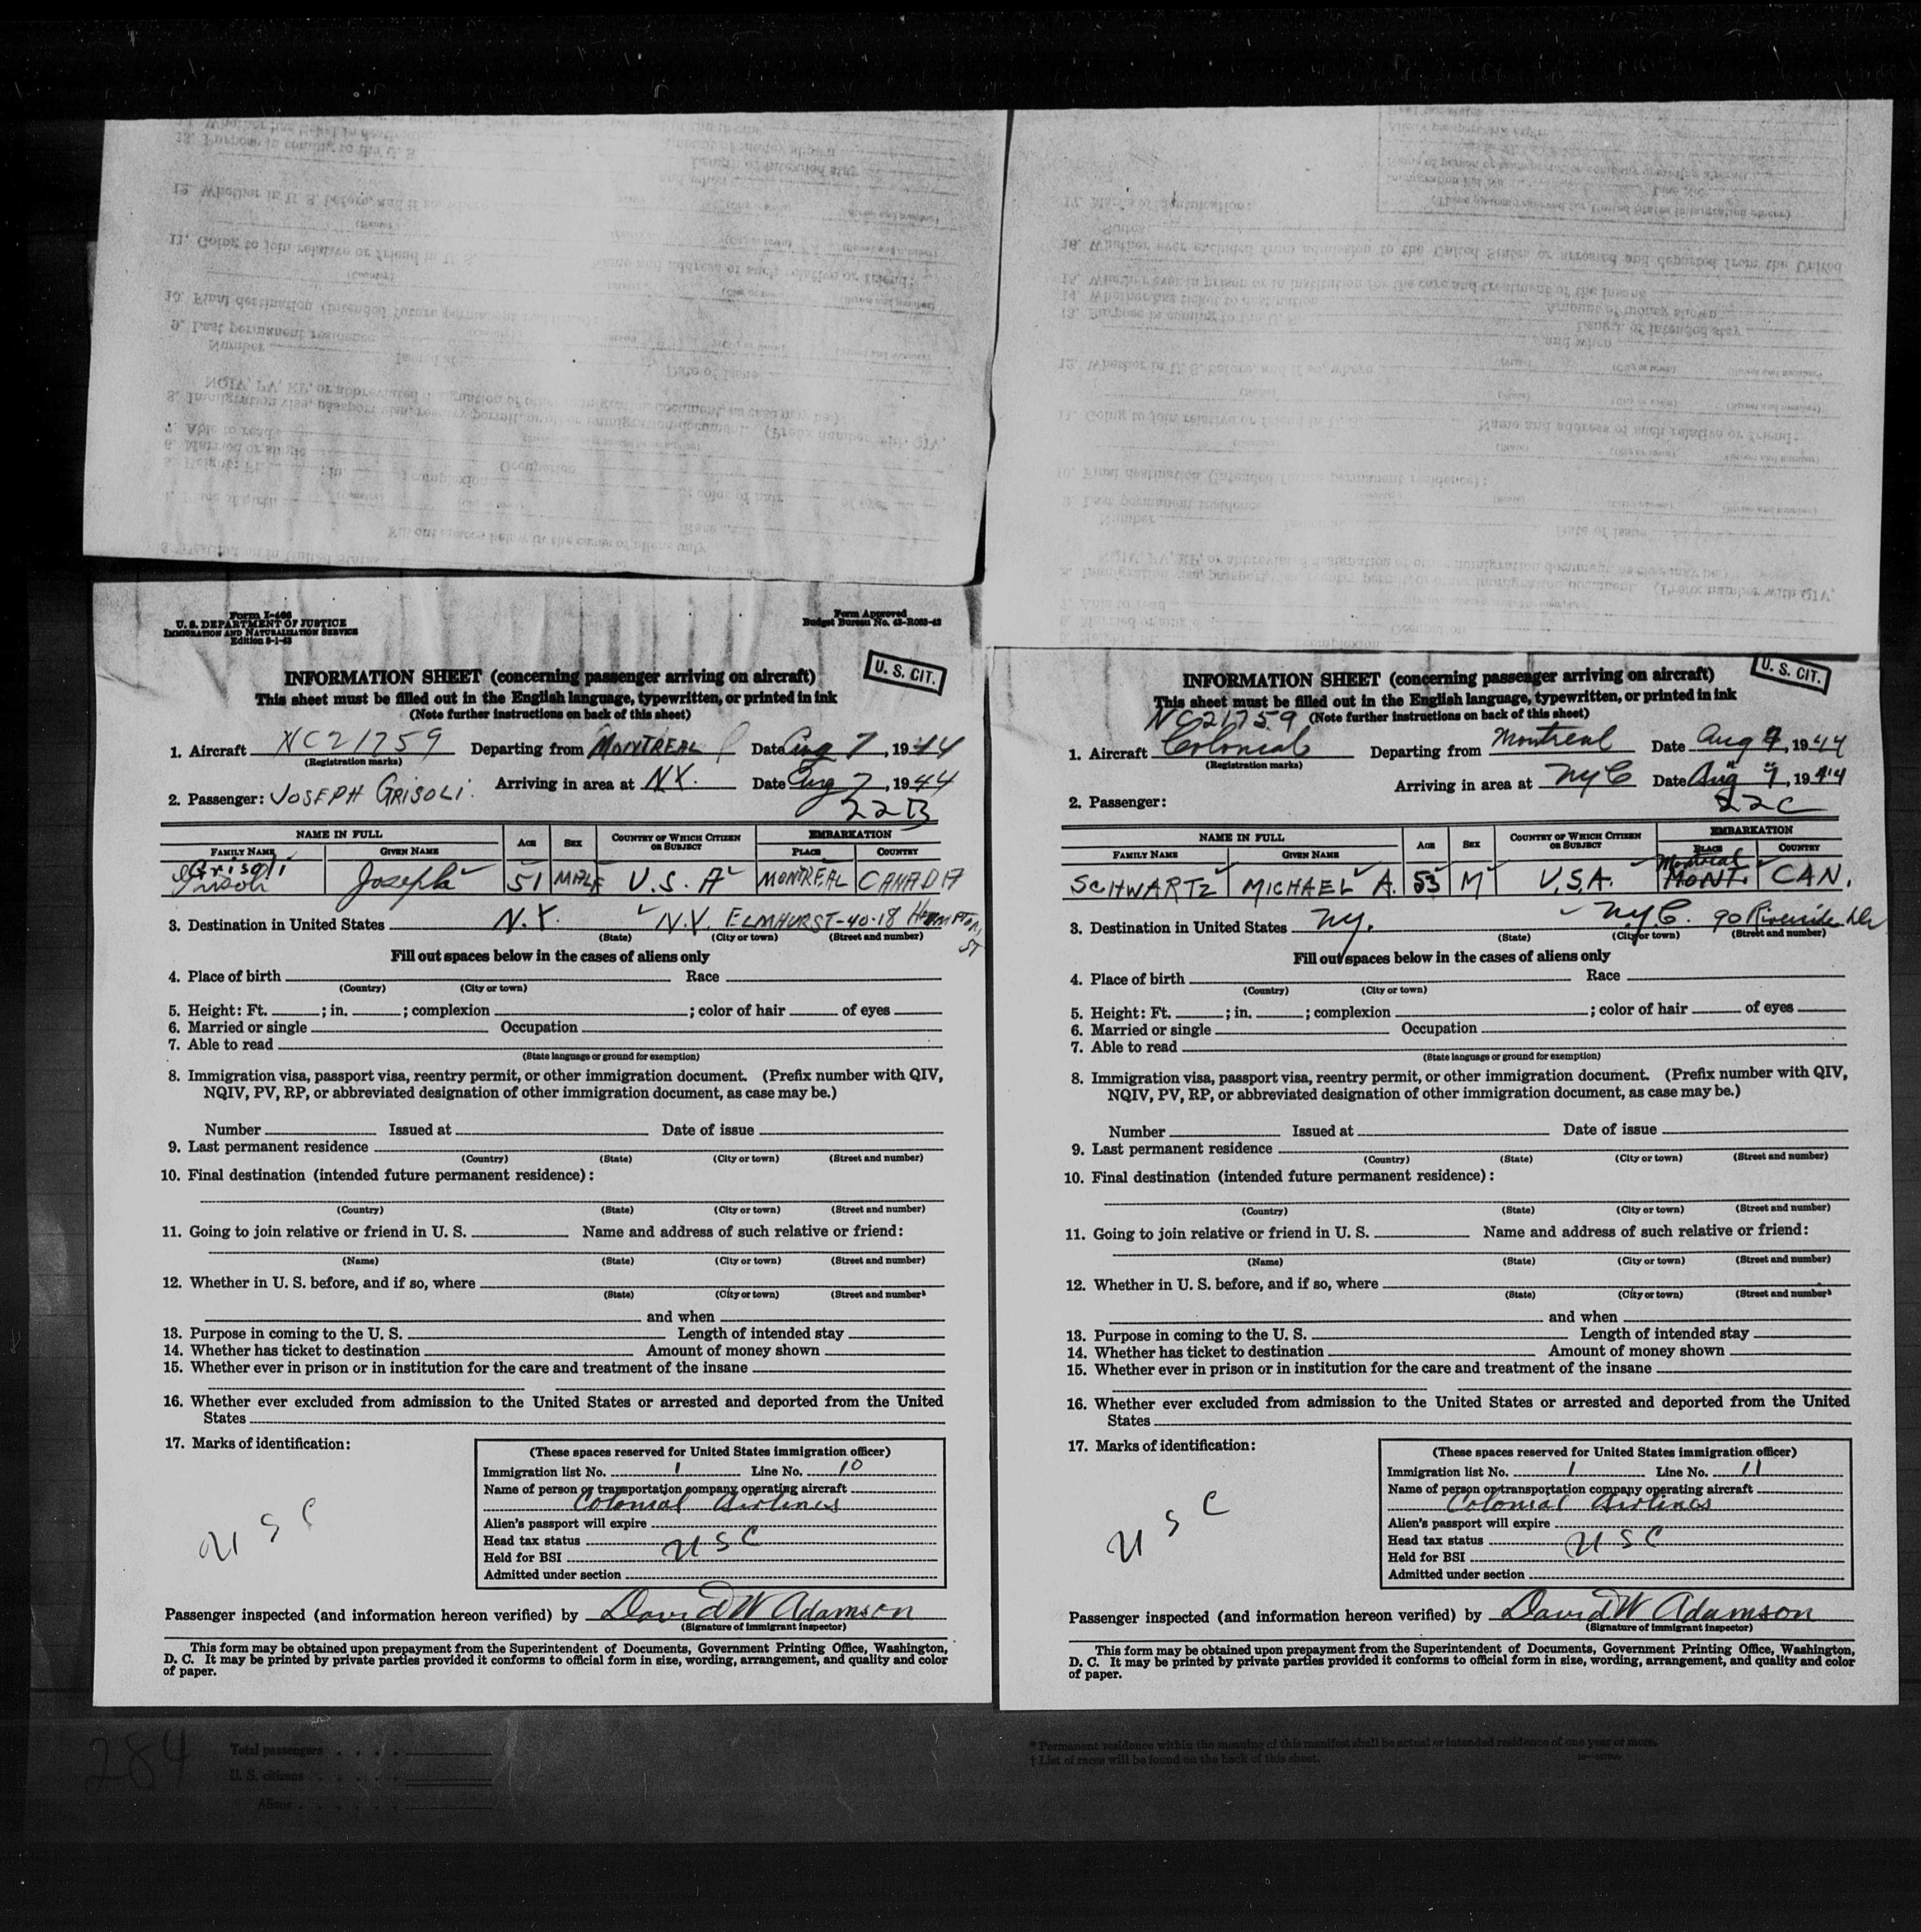 Form I-466
U. S. DEPARTMENT OF JUSTICE
IMMIGRATION AND NATURALIZATION SERVICE
Form Approved
Budget Bureau No. 43-R063-42
U. S. CIT.
INFORMATION SHEET (concerning passenger arriving on aircraft)
This sheet must be filled out in the English language, typewritten, or printed in ink
(Note further instructions on back of this sheet)
1. Aircraft NC21759 Departing from MONTREAL Date Aug 7, 1944
(Registration marks)
Arriving in area at N.Y. Date Aug 7, 1944
2. Passenger: JOSEPH GRISOLI.
22B
NAME IN FULL AGE SEX COUNTRY OF WHICH CITIZEN OR SUBJECT EMBARKATION
FAMILY NAME GIVEN NAME PLACE COUNTRY
Grisoli
Grisoli Joseph 51 MALE U.S.A MONTREAL CANADA
3. Destination in United States N.Y. N.Y. ELMHURST-40-18 HAMPTON ST
(State) (City or town) (Street and number)
Fill out spaces below in the cases of aliens only
4. Place of birth Race
(Country) (City or town)
5. Height: Ft. ; in. ; complexion ; color of hair of eyes
6. Married or single Occupation
7. Able to read
(State language or ground for exemption)
8. Immigration visa, passport visa, reentry permit, or other immigration document. (Prefix number with QIV,
NQIV, PV, RP, or abbreviated designation of other immigration document, as case may be.)
Number Issued at Date of issue
9. Last permanent residence
(Country) (State) (City or town) (Street and number)
10. Final destination (intended future permanent residence):
(Country) (State) (City or town) (Street and number)
11. Going to join relative or friend in U. S. Name and address of such relative or friend:
(Name) (State) (City or town) (Street and number)
12. Whether in U. S. before, and if so, where
(State) (City or town) (Street and number)
and when
13. Purpose in coming to the U. S. Length of intended stay
14. Whether has ticket to destination Amount of money shown
15. Whether ever in prison or in institution for the care and treatment of the insane
16. Whether ever excluded from admission to the United States or arrested and deported from the United
States
17. Marks of identification:
U S C
(These spaces reserved for United States immigration officer)
Immigration list No. 1 Line No. 10
Name of person or transportation company operating aircraft
Colonial Airlines
Alien's passport will expire
Head tax status U S C
Held for BSI
Admitted under section
Passenger inspected (and information hereon verified) by David W Adamson
(Signature of immigrant inspector)
This form may be obtained upon prepayment from the Superintendent of Documents, Government Printing Office, Washington,
D. C. It may be printed by private parties provided it conforms to official form in size, wording, arrangement, and quality and color
of paper.
U. S. CIT.
INFORMATION SHEET (concerning passenger arriving on aircraft)
This sheet must be filled out in the English language, typewritten, or printed in ink
NC21759 (Note further instructions on back of this sheet)
1. Aircraft Colonial Departing from Montreal Date Aug 7, 1944
(Registration marks)
Arriving in area at NYC Date Aug 7, 1944
2. Passenger:
22C
NAME IN FULL AGE SEX COUNTRY OF WHICH CITIZEN OR SUBJECT EMBARKATION
FAMILY NAME GIVEN NAME PLACE COUNTRY
Montreal
SCHWARTZ MICHAEL A. 53 M U.S.A. MONT. CAN.
3. Destination in United States NY. N.Y.C. 90 Riverside Dr
(State) (City or town) (Street and number)
Fill out spaces below in the cases of aliens only
4. Place of birth Race
(Country) (City or town)
5. Height: Ft. ; in. ; complexion ; color of hair of eyes
6. Married or single Occupation
7. Able to read
(State language or ground for exemption)
8. Immigration visa, passport visa, reentry permit, or other immigration document. (Prefix number with QIV,
NQIV, PV, RP, or abbreviated designation of other immigration document, as case may be.)
Number Issued at Date of issue
9. Last permanent residence
(Country) (State) (City or town) (Street and number)
10. Final destination (intended future permanent residence):
(Country) (State) (City or town) (Street and number)
11. Going to join relative or friend in U. S. Name and address of such relative or friend:
(Name) (State) (City or town) (Street and number)
12. Whether in U. S. before, and if so, where
(State) (City or town) (Street and number)
and when
13. Purpose in coming to the U. S. Length of intended stay
14. Whether has ticket to destination Amount of money shown
15. Whether ever in prison or in institution for the care and treatment of the insane
16. Whether ever excluded from admission to the United States or arrested and deported from the United
States
17. Marks of identification:
U S C
(These spaces reserved for United States immigration officer)
Immigration list No. 1 Line No. 11
Name of person or transportation company operating aircraft
Colonial Airlines
Alien's passport will expire
Head tax status U S C
Held for BSI
Admitted under section
Passenger inspected (and information hereon verified) by David W Adamson
(Signature of immigrant inspector)
This form may be obtained upon prepayment from the Superintendent of Documents, Government Printing Office, Washington,
D. C. It may be printed by private parties provided it conforms to official form in size, wording, arrangement, and quality and color
of paper.
284
Total passengers
U. S. citizens
Aliens
* Permanent residence within the meaning of this manifest shall be actual or intended residence of one year or more.
† List of races will be found on the back of this sheet.